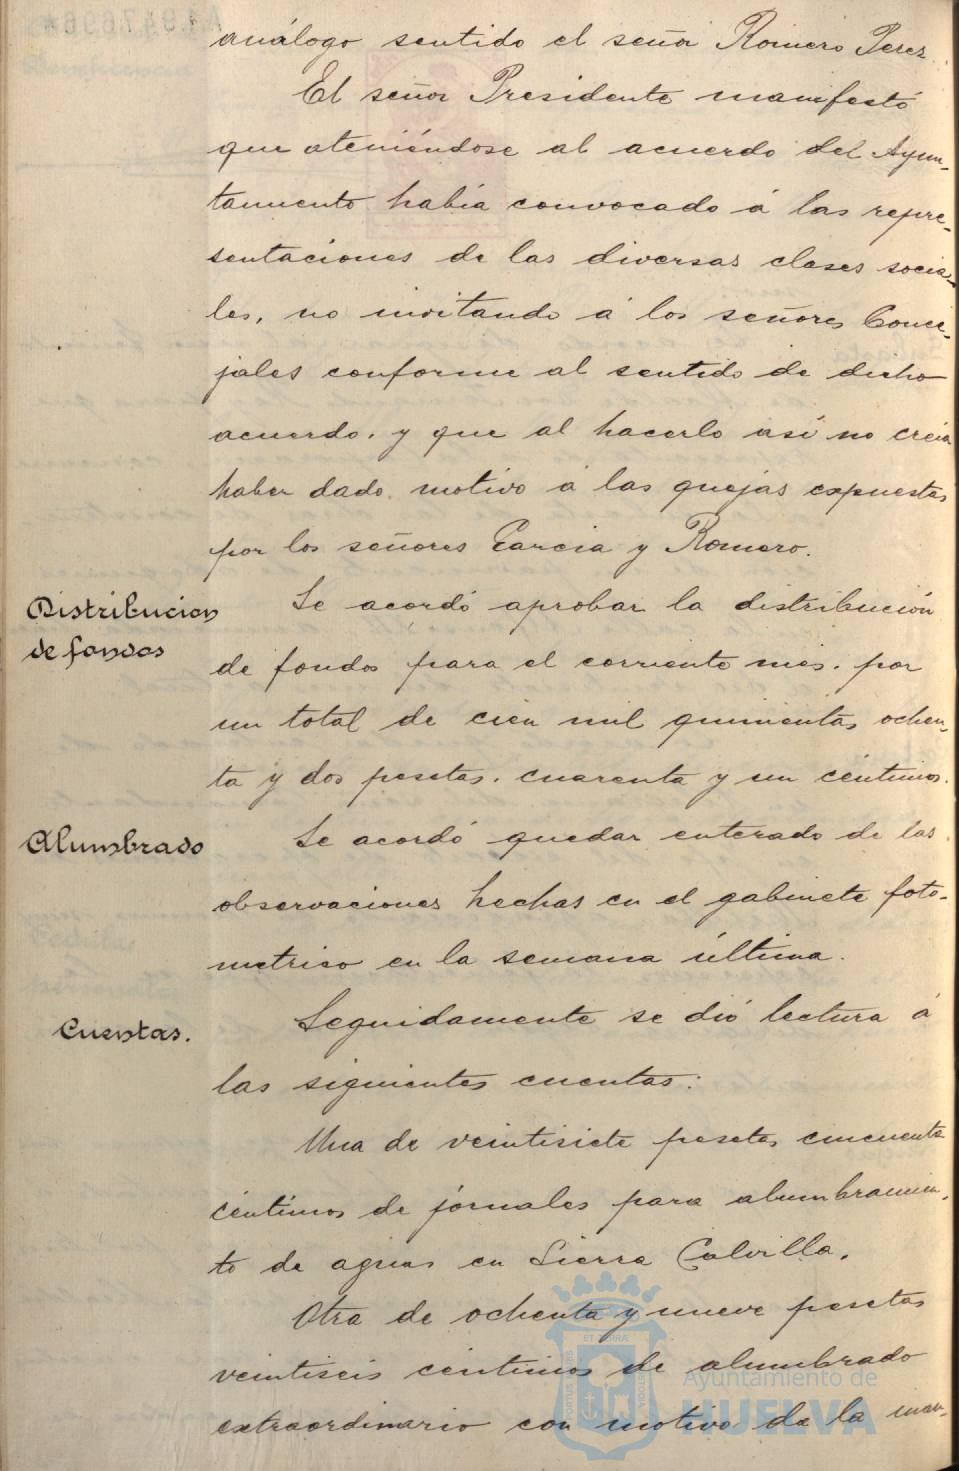 análogo sentido el señor Romero Perez.
El señor Presidente manifestó
que ateniéndose al acuerdo del Ayun-
tamiento había convocado á las repre-
sentaciones de las diversas clases socia-
les, no invitando á los señores Conce-
jales conforme al sentido de dicho
acuerdo, y que al hacerlo así no creia
haber dado motivo á las quejas expuestas
por los señores Garcia y Romero.
Distribucion
de fondos
Se acordó aprobar la distribución
de fondos para el corriente mes, por
un total de cien mil quinientas, ochen-
ta y dos pesetas, cuarenta y un céntimos.
Alumbrado
Se acordó quedar enterado de las
observaciones hechas en el gabinete foto-
metrico en la semana última.
Cuentas.
Seguidamente se dió lectura á
las siguientes cuentas:
Una de veintisiete pesetas cincuenta
céntimos de jornales para alumbramien-
to de aguas en Sierra Calvilla.
Otra de ochenta y nueve pesetas
veintiseis céntimos de alumbrado
extraordinario con motivo de la
Ayuntamiento de
HUELVA